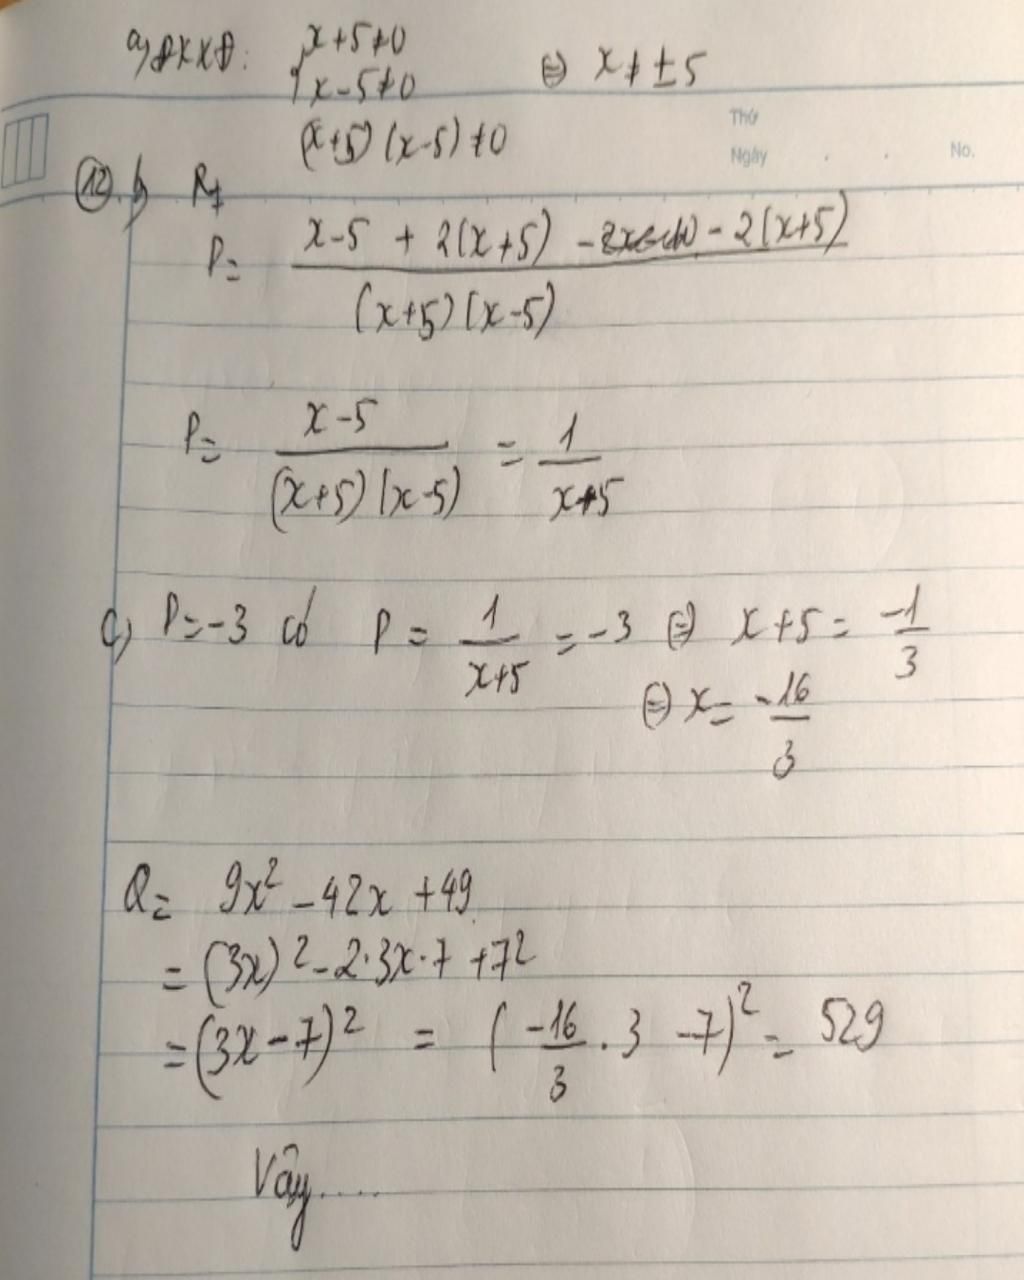 a) ĐKXĐ: { x+5≠0
x-5≠0 ⇔ x ≠ ±5
(x+5)(x-5) ≠0
Thứ
Ngày . . No.
12. b)
P= (x-5 + 2(x+5) - 2(x+5)) / ((x+5)(x-5))
P= (x-5) / ((x+5)(x-5)) = 1 / (x+5)
c) P=-3 có P = 1 / (x+5) = -3 ⇔ x+5 = -1/3
⇔ x= -16/3
Q= 9x² - 42x + 49
= (3x)² - 2·3x·7 + 7²
= (3x-7)² = (-16/3 . 3 -7)² = 529
Vậy.....